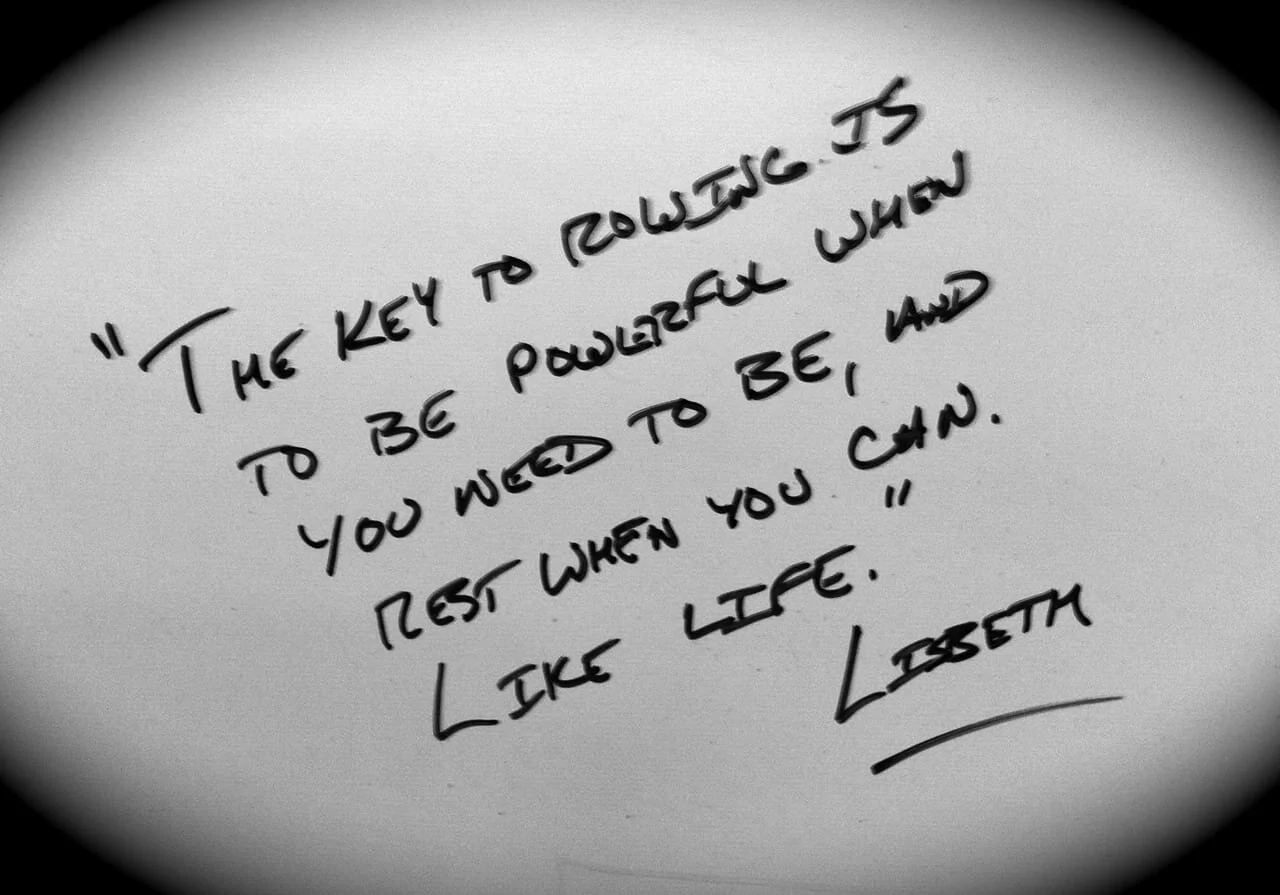 "THE KEY TO ROWING IS
TO BE POWERFUL WHEN
YOU NEED TO BE, AND
REST WHEN YOU CAN.
LIKE LIFE."
LISBETH